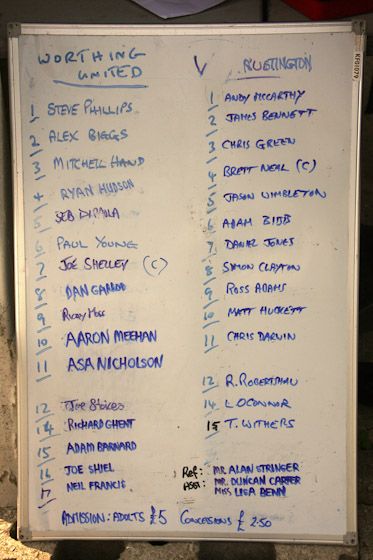 WORTHING UNITED
V
RUSTINGTON
KF01079
1 STEVE PHILLIPS
2 ALEX BIGGS
3 MITCHELL HAND
4 RYAN HUDSON
5 SEB DIPAOLA
6 PAUL YOUNG
7 JOE SHELLEY (C)
8 DAN GAMOD
9 Ricky Moss
10 AARON MEEHAN
11 ASA NICHOLSON
12 Joe Stokes
14 RICHARD GHENT
15 ADAM BARNARD
16 JOE SHIEL
17 NEIL FRANCIS
1 ANDY MCCARTHY
2 JAMES BENNETT
3 CHRIS GREEN
4 BRETT NEAL (C)
5 JASON WIMBLETON
6 ADAM BIBB
7 DANIEL JONES
8 SIMON CLAYTON
9 ROSS ADAMS
10 MATT HUCKETT
11 CHRIS DARWIN
12 R. ROBERTSHAW
14 L OCONNOR
15 T. WITHERS
Ref: MR ALAN STRINGER
ASST: MR. DUNCAN CARTER
MISS LISA BENN
ADMISSION: ADULTS £5 CONCESSIONS £2.50